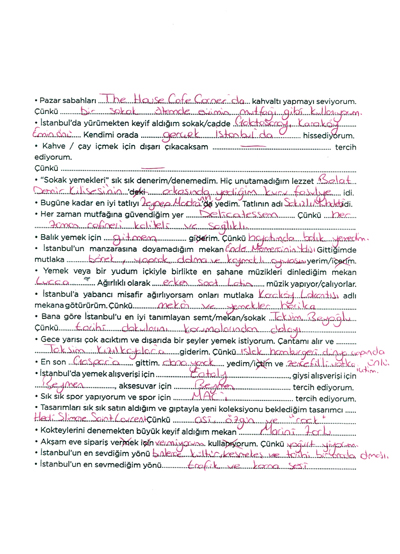 • Pazar sabahları The House Cafe Corner'da kahvaltı yapmayı seviyorum.
Çünkü bir sokak ötemde evimin mutfağı gibi kullanıyorum.
• İstanbul'da yürümekten keyif aldığım sokak/cadde Galatasaray, Karaköy
Eminönü. Kendimi orada gerçek İstanbul'da hissediyorum.
• Kahve / çay içmek için dışarı çıkacaksam — tercih
ediyorum.
Çünkü —
• "Sokak yemekleri" sık sık denerim/denemedim. Hiç unutamadığım lezzet Balat
Demir Kilisesinin 'deki arkasında yediğim kuru fasulye idi.
• Bugüne kadar en iyi tatlıyı Moda'da yedim. Tatlının adı
• Her zaman mutfağına güvendiğim yer Delicatessen Çünkü her
zaman rafineri kaliteli ve sağlıklı.
• Balık yemek için gitmem giderim. Çünkü hayatımda balık yemedim.
• İstanbul'un manzarasına doyamadığım mekan Gittiğimde
mutlaka börek, yaprak dolma ve kıymetli yerim/içerim.
• Yemek veya bir yudum içkiyle birlikte en sahane müzikleri dinlediğim mekan
Lucca Ağırlıklı olarak erken saat Latin müzik yapıyor/çalıyorlar.
• İstanbul'a yabancı misafir ağırlıyorsam onları mutlaka Karaköy Lokantası adlı
mekana götürürüm. Çünkü mekan ve yemekler harika
• Bana göre İstanbul'u en iyi tanımlayan semt/mekan/sokak Taksim Beyoğlu
Çünkü tarihi dokularını korumalarından dolayı
• Gece yarısı çok acıktım ve dışarıda bir şeyler yemek istiyorum. Cantamı alır ve
Taksim Kızılkayalara giderim. Çünkü ıslak hamburgeri dünya çapında
ünlü.
• En son gittim yedim/içtim ve
• İstanbul'da yemek alışverişi için Eataly giysi alışverişi için
Beymen, aksesuvar için Beymen tercih ediyorum.
• Sık sık spor yapıyorum ve spor için MAC'ı tercih ediyorum.
• Tasarımları sık sık satın aldığım ve gıptayla yeni koleksiyonu beklediğim tasarımcı
Hedi Slimane Saint Laurent Çünkü asi, özgün ve "rock"
• Kokteylerini denemekten büyük keyif aldığım mekan Macini Zorlu
• Akşam eve sipariş vermek için vermiyorum kullanıyorum. Çünkü yoğurt yiyorum.
• İstanbul'un en sevdiğim yönü kültür, ve tarihi bir arada olması.
• İstanbul'un en sevmediğim yönü trafik ve korna sesi